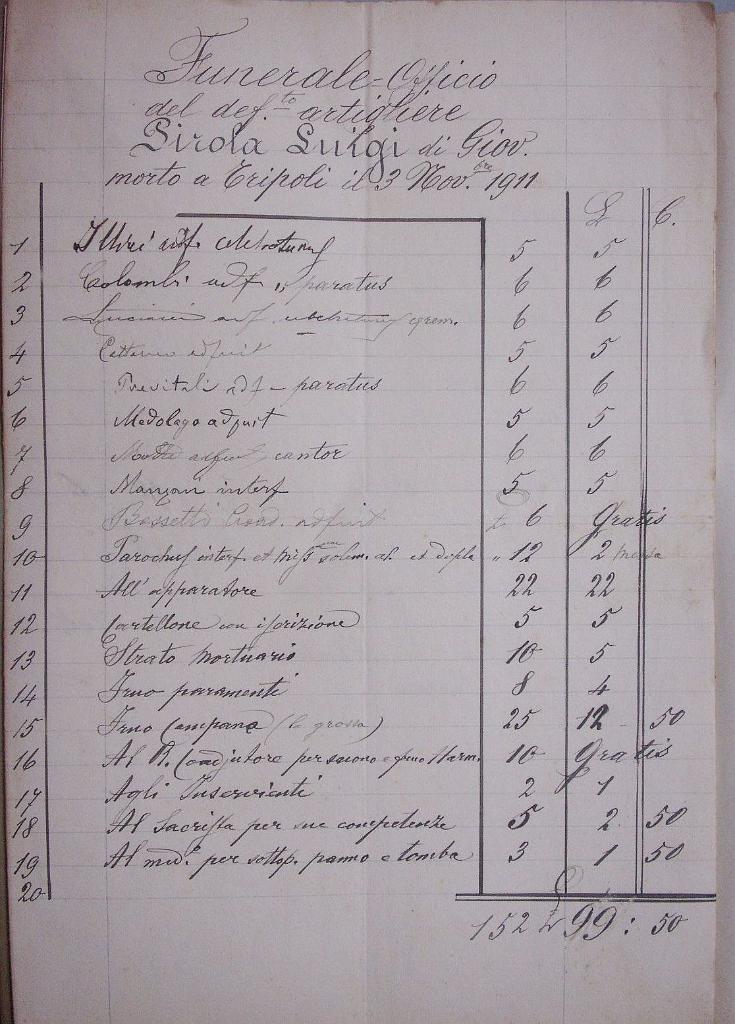 Funerale=Officio
del def.to artigliere
Pirola Luigi di Giov.
morto a Tripoli il 3 Nov.bre 1911
£ C.
1 adf. 5 5
2 Colombi adf. paratus 6 6
3 adf. 6 6
4 adfuit 5 5
5 Previtali adf - paratus 6 6
6 Medolago adfuit 5 5
7 cantor 6 6
8 Manzoni interf 5 5
9 Bossetti Coad. adfuit 6 Gratis
10 Parochus interf. et solem. et dupla " 12 2 messa
11 All' apparatore 22 22
12 Cartellone con iscrizione 5 5
13 Strato mortuario 10 5
14 Iuso paramenti 8 4
15 Iuso Campana (la grossa) 25 12 - 50
16 Al R. Coadjutore per suono e Harm. 10 Gratis
17 Agli Inservienti 2 1
18 Al Sacrista per sue competenze 5 2. 50
19 Al med.o per sottop. panno e tomba 3 1 50
20
152 £ 99 : 50